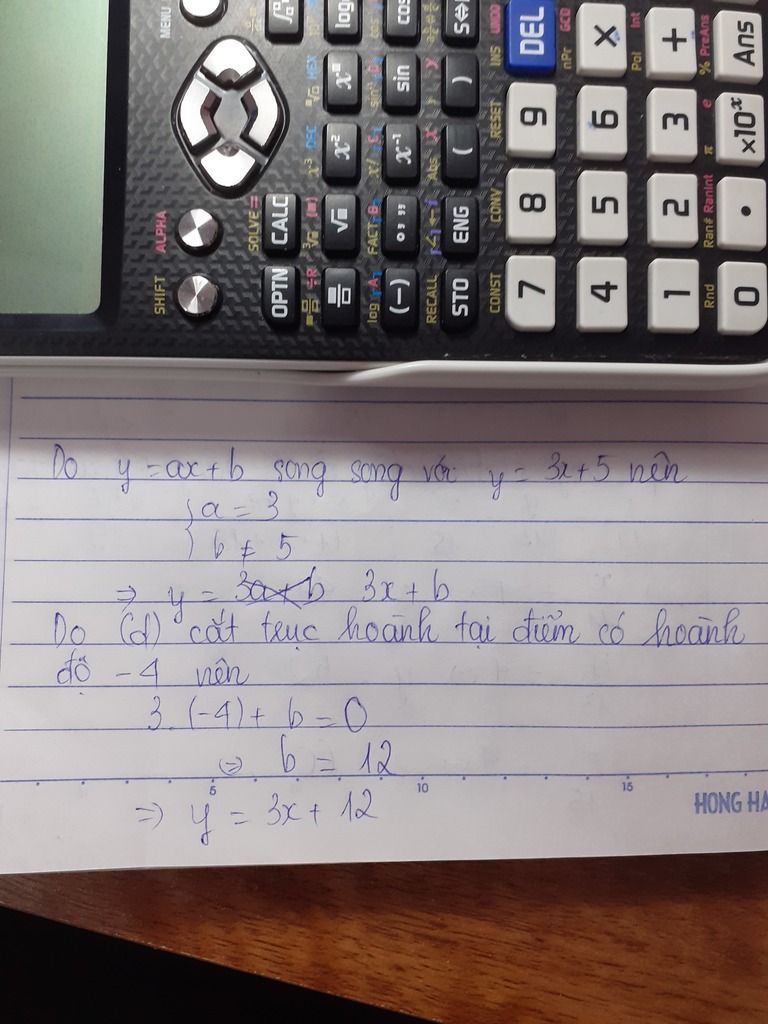 MENU
log
cos
S⇔
DEL
×
+
Ans
INS UNDO nPr GCD Pol Int % PreAns
x■
sin
)
9
6
3
×10ˣ
RESET π e
x²
x⁻¹
(
Abs
ALPHA
SOLVE =
CALC
√■
FACT B
° ’ ”
ENG
CONV
8
5
2
•
Ran# RanInt
SHIFT
OPTN
log A
(−)
RECALL
STO
CONST
7
4
1
Rnd
0
Do y = ax + b song song với y = 3x + 5 nên
{ a = 3
b ≠ 5
⇒ y = 3a + b 3x + b
Do (d) cắt trục hoành tại điểm có hoành
độ - 4 nên
3. (-4) + b = 0
⇔ b = 12
5 10 15 HONG HA
⇒ y = 3x + 12